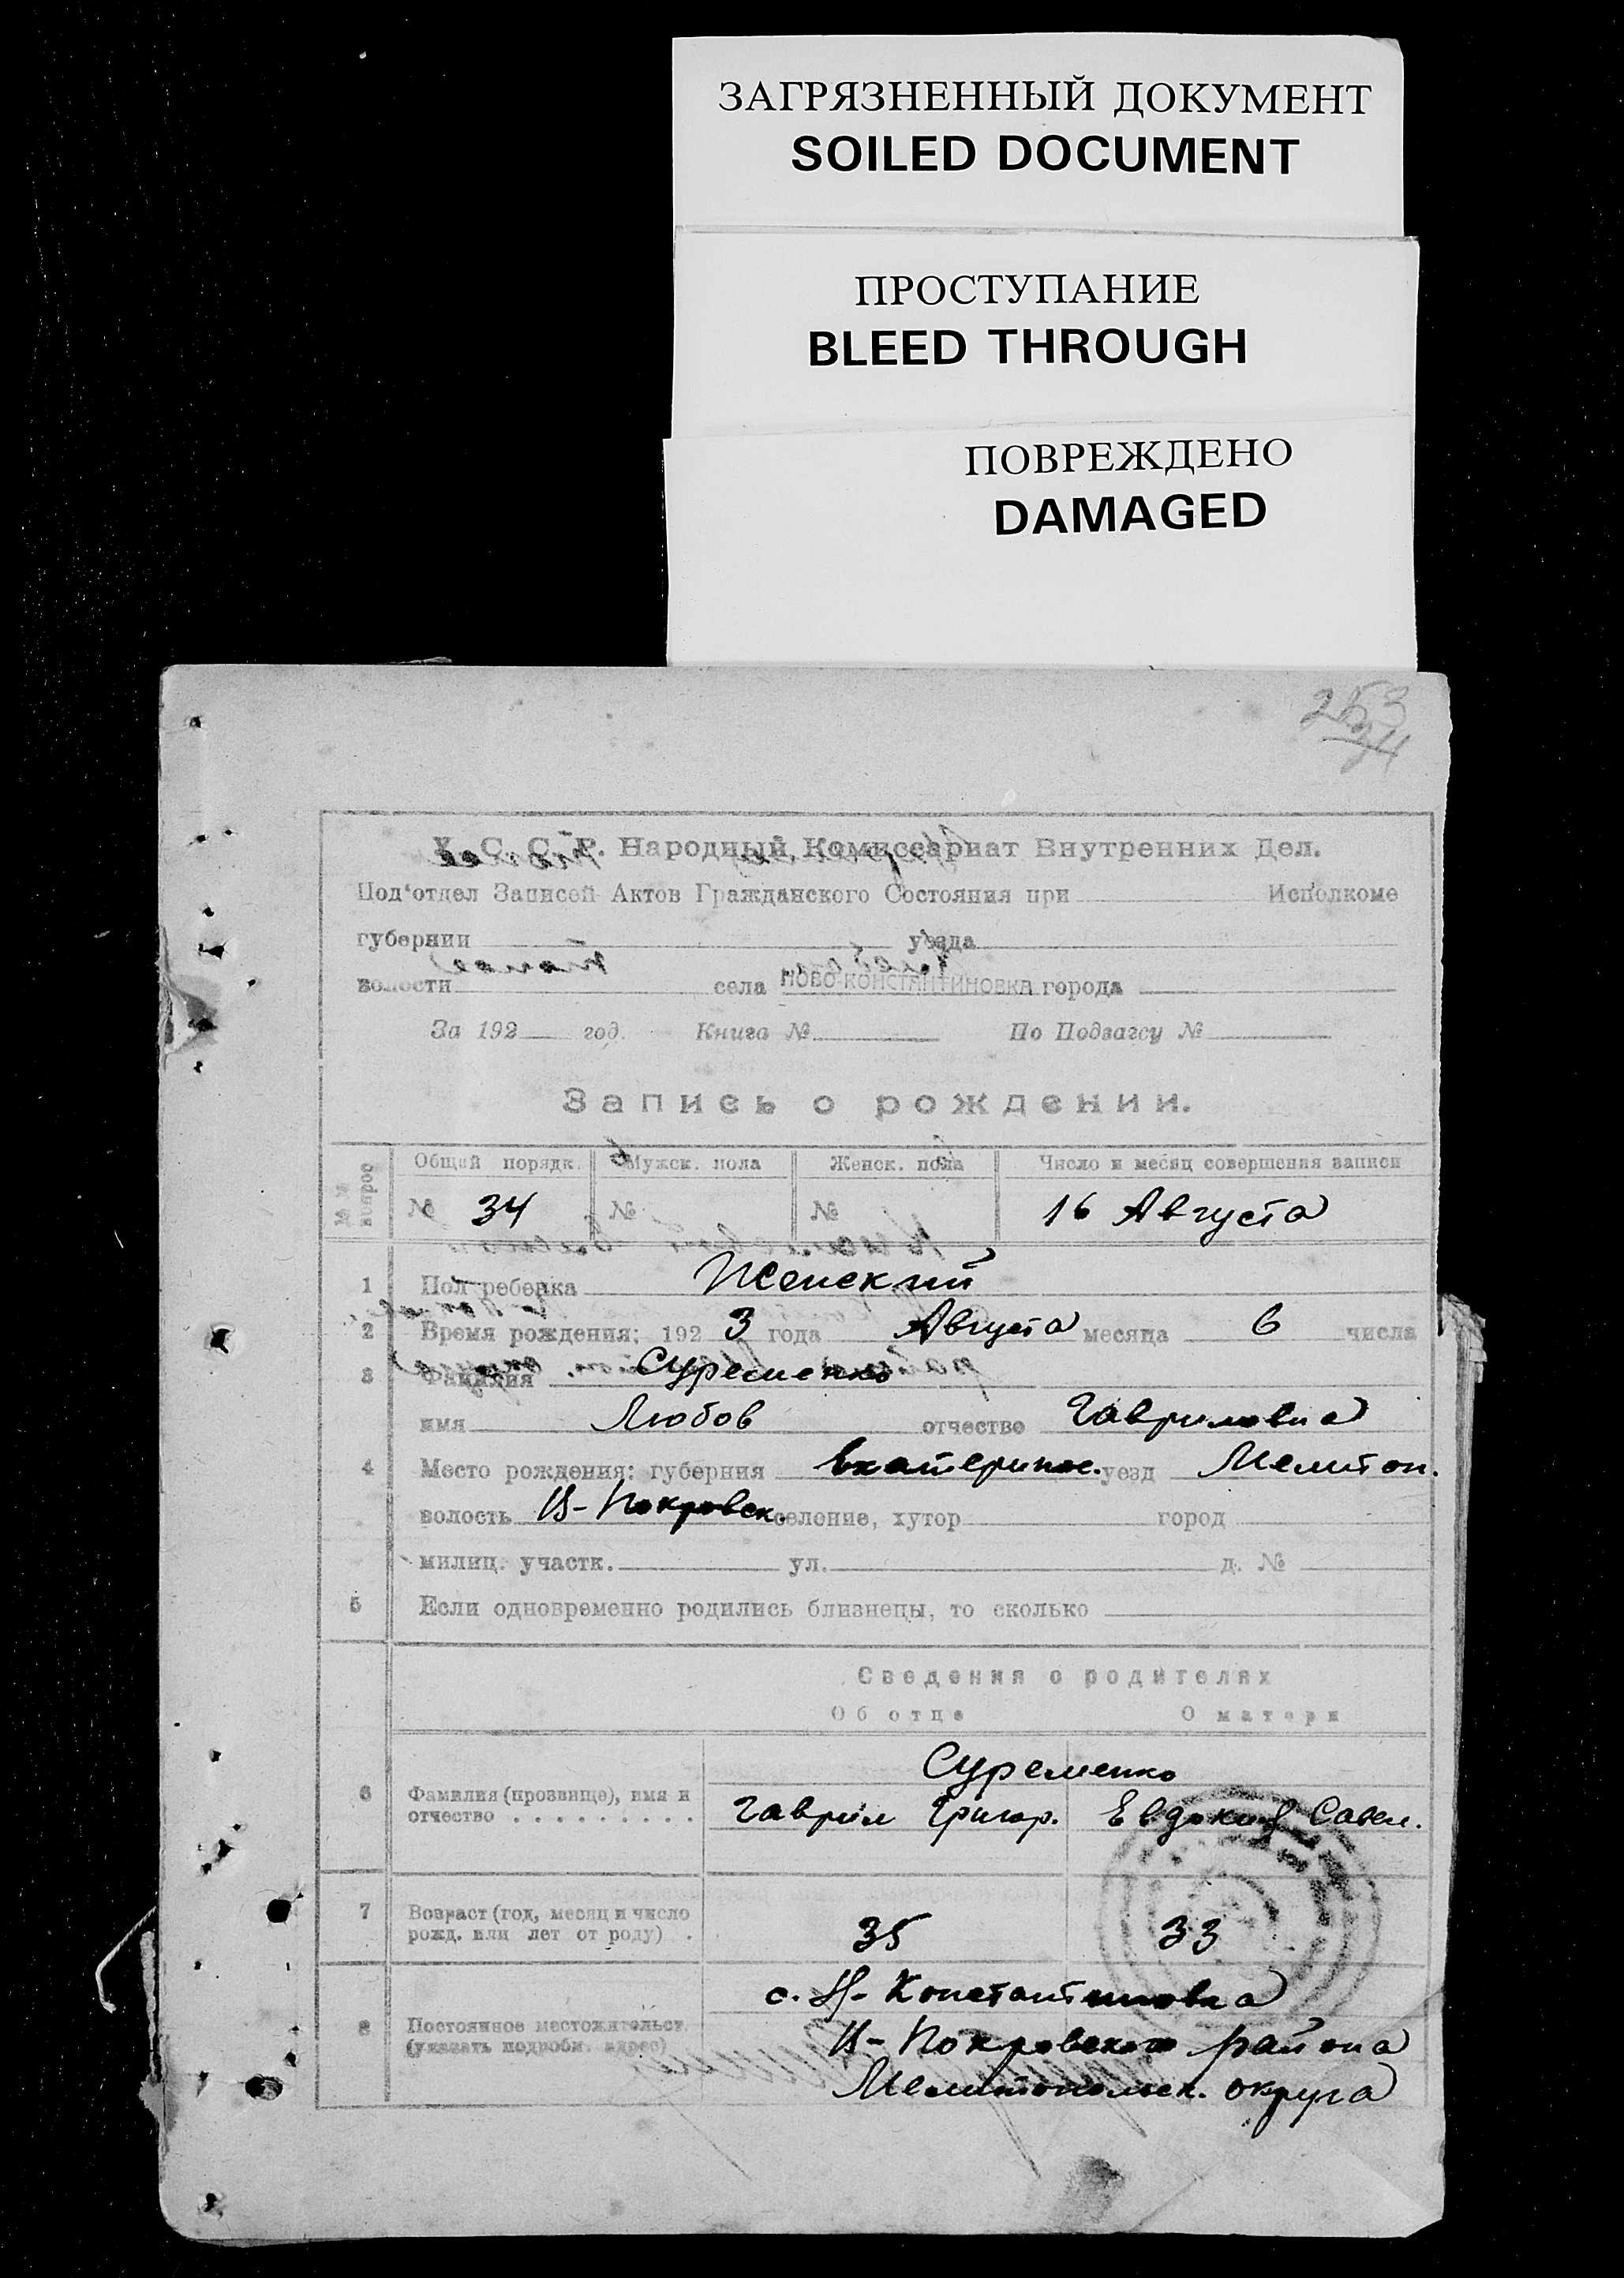 ЗАГРЯЗНЕННЫЙ ДОКУМЕНТ
SOILED DOCUMENT
ПРОСТУПАНИЕ
BLEED THROUGH
ПОВРЕЖДЕНО
DAMAGED
253
34
У. С. С. Р. Народный Комиссариат Внутренних Дел.
Под'отдел Записей Актов Гражданского Состояния при Исполкоме
губернии уезда
волости села НОВО-КОНСТАНТИНОВКА города
За 192 год. Книга № По Подзагсу №
Запись о рождении.
№№ вопрос Общий порядк. Мужск. пола Женск. пола Число и месяц совершения записи
№ 34 № № 16 Августа
1 Пол ребенка Женский
2 Время рождения: 192 3 года Августа месяца 6 числа
3 Фамилия Суременко
имя Любов отчество Гавриловна
4 Место рождения: губерния Екатеринос. уезд Мелитоп.
волость Н-Покровск. селение, хутор город
милиц. участк. ул. д. №
5 Если одновременно родились близнецы, то сколько
Сведения о родителях
Об отце О матери
Суременко
6 Фамилия (прозвище), имя и отчество . . . . . . . . . Гаврил Григор. Евдокия Савел.
7 Возраст (год, месяц и число рожд. или лет от роду) . 35 33
с. Н-Константиновка
8 Постоянное местожительств. (указать подробн. адрес) Н-Покровского района
Мелитопольск. округа